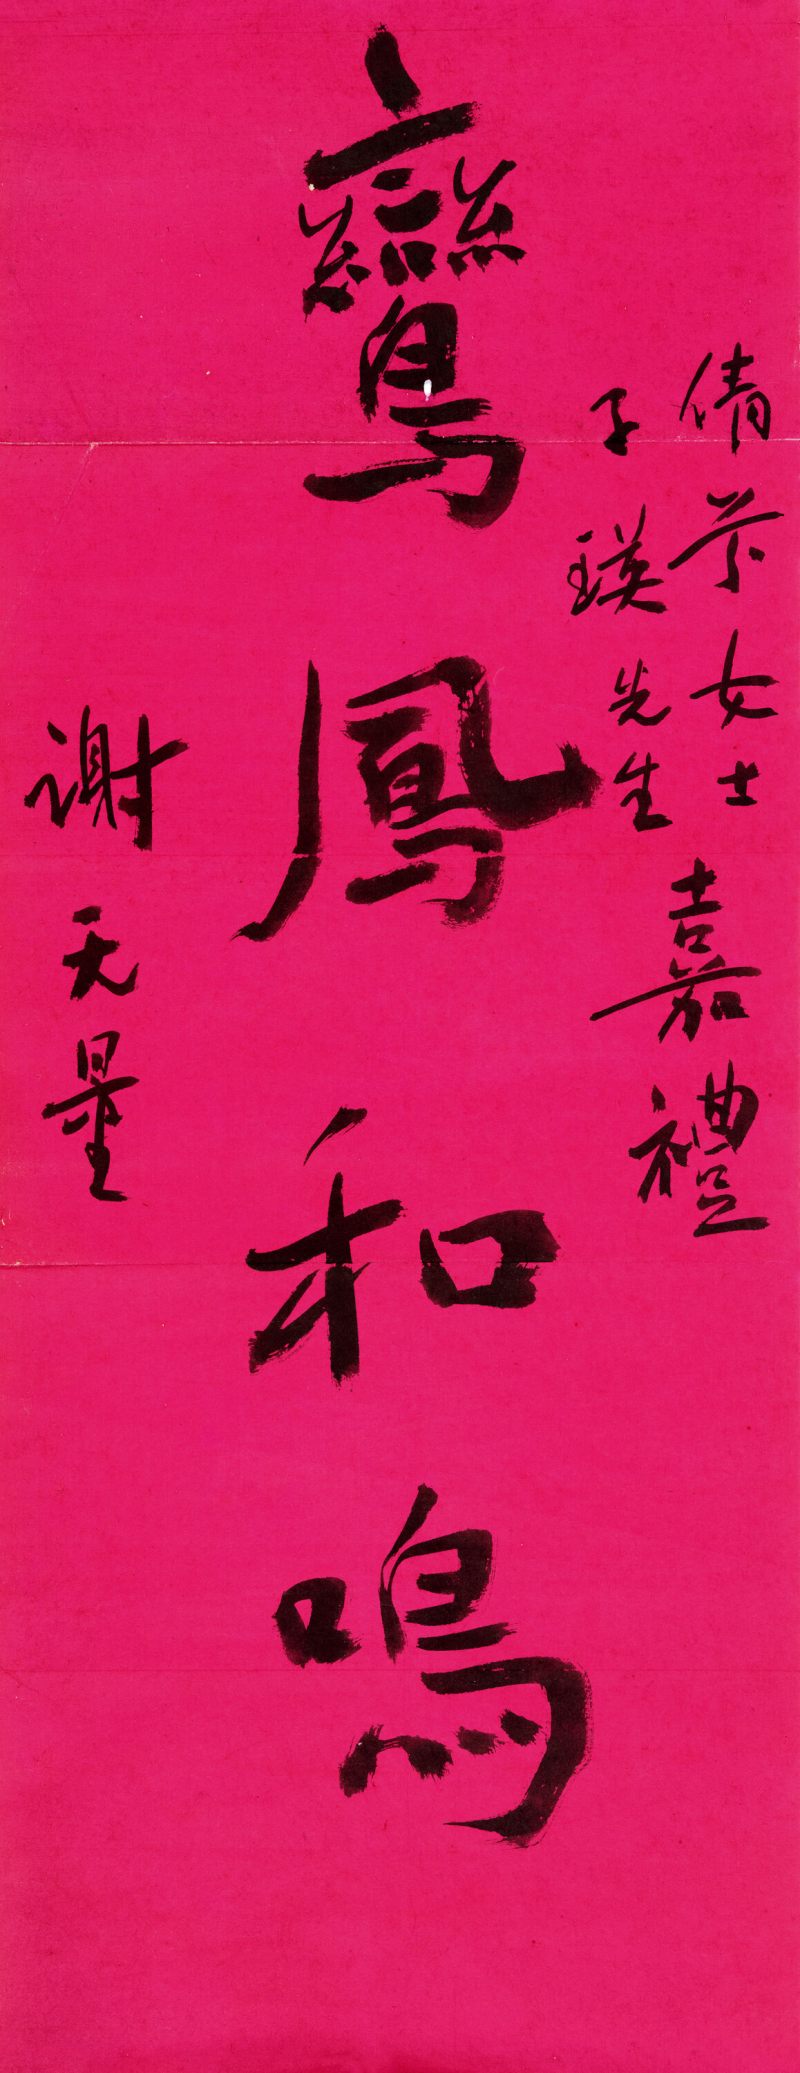 倩女士
子瑛先生
嘉禮
鸞鳳和鳴
谢无量